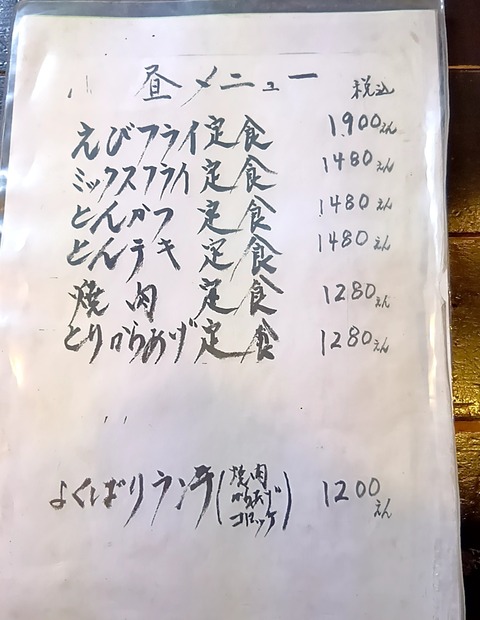 昼メニュー 税込
えびフライ定食 1,900えん
ミックスフライ定食 1480えん
とんかつ定食 1480えん
とんテキ定食 1480えん
焼肉定食 1280えん
とりからあげ定食 1280えん
よくばりランチ(焼肉 からあげ コロッケ) 1200えん